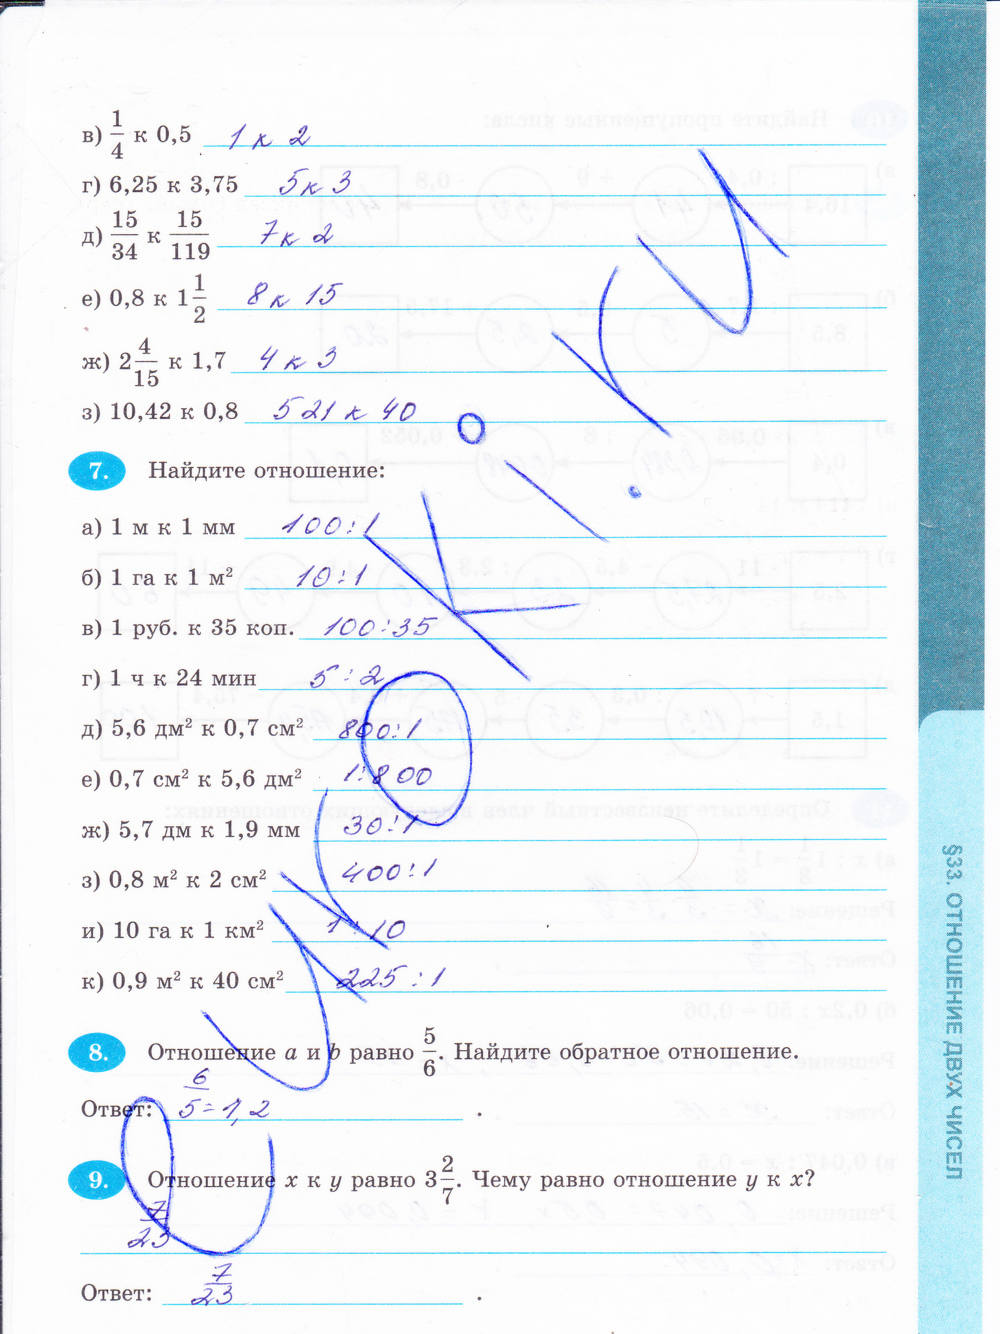 в) 1/4 к 0,5 1 к 2
г) 6,25 к 3,75 5 к 3
д) 15/34 к 15/119 7 к 2
е) 0,8 к 1 1/2 8 к 15
ж) 2 4/15 к 1,7 4 к 3
з) 10,42 к 0,8 521 к 40
7. Найдите отношение:
а) 1 м к 1 мм 100:1
б) 1 га к 1 м² 10:1
в) 1 руб. к 35 коп. 100:35
г) 1 ч к 24 мин 5:2
д) 5,6 дм² к 0,7 см² 800:1
е) 0,7 см² к 5,6 дм² 1:800
ж) 5,7 дм к 1,9 мм 30:1
з) 0,8 м² к 2 см² 400:1
и) 10 га к 1 км² 1:10
к) 0,9 м² к 40 см² 225:1
8. Отношение a и b равно 5/6. Найдите обратное отношение.
Ответ: 6/5 = 1,2 .
9. Отношение x к y равно 3 2/7. Чему равно отношение y к x?
7/23
Ответ: 7/23 .
§33. ОТНОШЕНИЕ ДВУХ ЧИСЕЛ